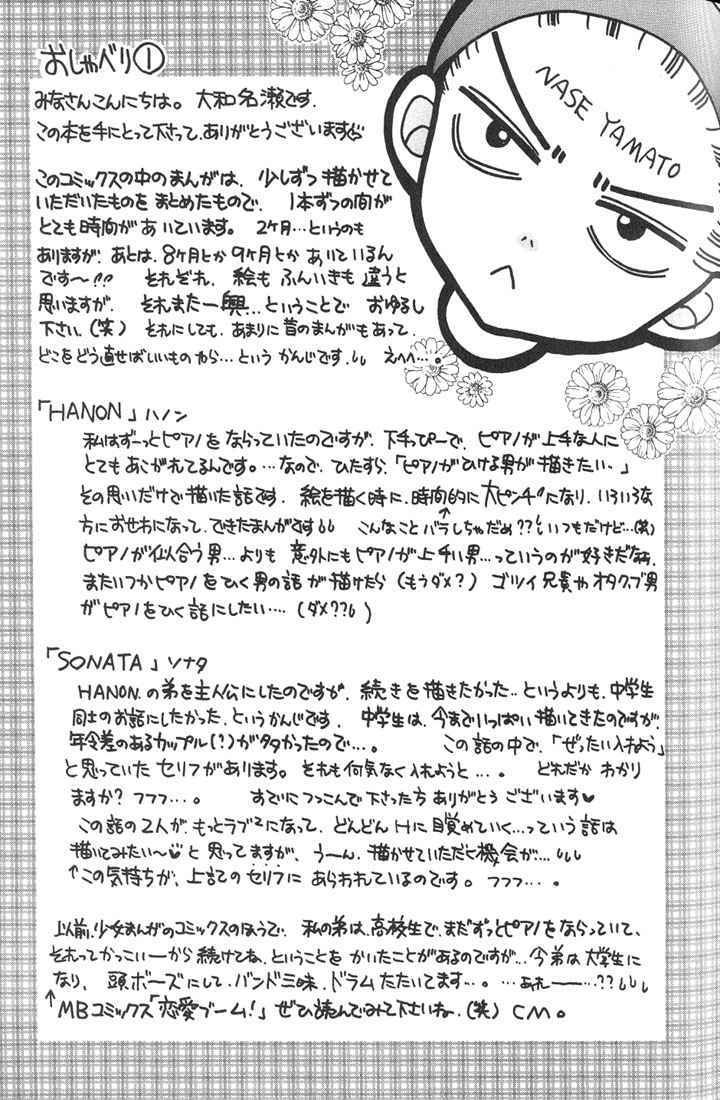 おしゃべり①
NASE YAMATO
みなさんこんにちは。大和名瀬です.
この本を手にとって下さって、ありがとうございます
このコミックスの中のまんがは、少しずつ描かせて
いただいたものを まとめたもので、1本ずつの間が
とても時間があいています。2ヶ月…というのも
ありますが、あとは、8ヶ月とか9ヶ月とか あいているん
です〜!! それぞれ、絵も ふんいきも 違うと
思いますが、それまた一興…ということで おゆるし
下さい。(笑) それにしても、あまりに昔のまんがもあって、
どこをどう直せばいいものやら…という かんじです. えへへ…。
「HANON」ハノン
私はずーっとピアノを ならっていたのですが、下手っぴーで、ピアノが上手な人に
とてもあこがれてるんです。…なので、ひたすら、「ピアノがひける男が描きたい、」
その思いだけで描いた話です. 絵を描く時に、時間的に大ピンチ!!になり、いろいろな
方におせわになって、できたまんがです
↑こんなことバラしちゃだめ??いつもだけど…(笑)
ピアノが似合う男…よりも 意外にもピアノが上手い男…っていうのが好きだなあ。
またいつかピアノをひく男の話が描けたら (もうダメ?) ゴツイ兄貴や オタクブ男
がピアノをひく話にしたい…. (ダメ??)
「SONATA」ソナタ
HANON.の弟を主人公にしたのですが、続きを描きたかった.. というよりも、中学生
同士のお話にしたかった、というかんじです. 中学生は、今までいっぱい描いてきたのですが、
年令差のあるカップル(?)が多かったので…。 この話の中で、「ぜったい入れよう」
と思っていた セリフがあります。それも何気なく入れようと…。 どれだか わかり
ますか? フフフ…。 すでにつっこんで下さった方 ありがとう ございます♥
この話の2人が、もっとラブ²になって、どんどん Hに目覚めていく…っていう話は
描いてみたい〜 と 思ってますが、うーん、描かせていただく機会が…
↑この気持ちが、上記のセリフに あらわれているのです。フフフ…。
以前、少女まんがのコミックスのほうで、私の弟は、高校生で、まだずっとピアノをならっていて、
それってかっこいーから続けてね、ということを かいたことがあるのですが…今弟は大学生に
なり、頭ボーズにして、バンド三昧、ドラム たたいてます…。…あれー――…??
↑MBコミックス「恋愛ブーム!」ぜひ読んでみて下さいね。(笑) CM。